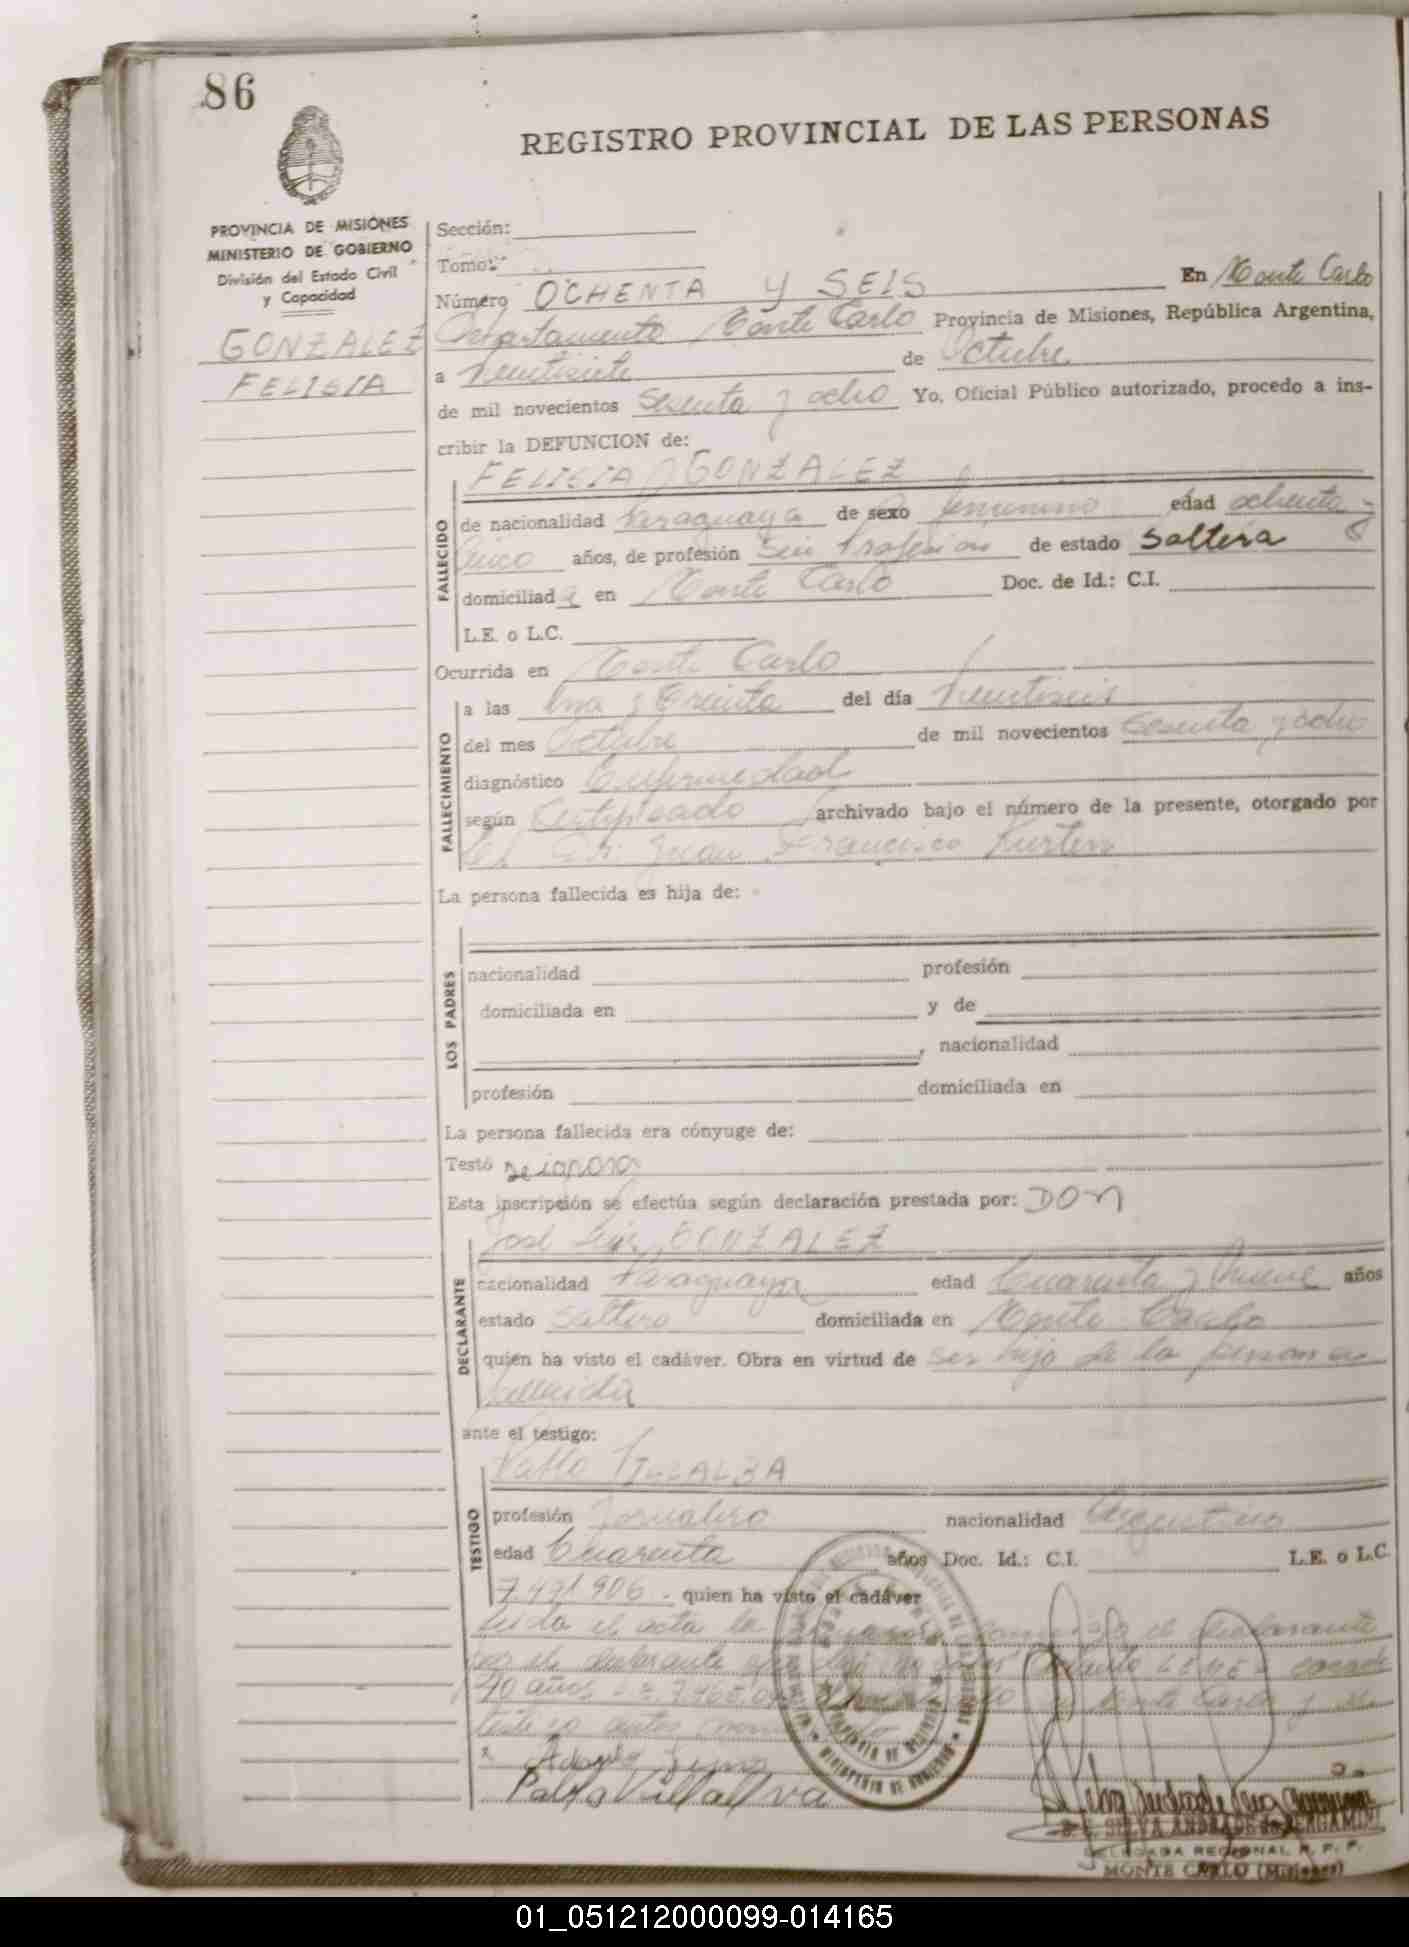 86
REGISTRO PROVINCIAL DE LAS PERSONAS
PROVINCIA DE MISIONES
MINISTERIO DE GOBIERNO
División del Estado Civil
y Capacidad
GONZALEZ
FELISIA
Sección:
Tomo:
Número OCHENTA Y SEIS En Monte Carlo
Departamento Monte Carlo Provincia de Misiones, República Argentina,
a Veintisiete de Octubre
de mil novecientos Sesenta y ocho Yo, Oficial Público autorizado, procedo a ins-
cribir la DEFUNCION de:
FELISIA GONZALEZ
FALLECIDO
de nacionalidad Paraguaya de sexo femenino edad ochenta y
cinco años, de profesión Sin Profesion de estado Soltera
domiciliada en Monte Carlo Doc. de Id.: C.I.
L.E. o L.C.
Ocurrida en Monte Carlo
FALLECIMIENTO
a las Una y Treinta del día Veintiseis
del mes Octubre de mil novecientos sesenta y ocho
diagnóstico Enfermedad
según Certificado archivado bajo el número de la presente, otorgado por
el Dr. Juan Francisco Kurten
La persona fallecida es hija de:
LOS PADRES
nacionalidad profesión
domiciliada en y de
, nacionalidad
profesión domiciliada en
La persona fallecida era cónyuge de:
Testó
Esta inscripción se efectúa según declaración prestada por: DON
José Luis GONZALEZ
DECLARANTE
nacionalidad Paraguaya edad Cuarenta y Nueve años
estado Soltero domiciliada en Monte Carlo
quien ha visto el cadáver. Obra en virtud de ser hijo de la persona
fallecida
ante el testigo:
Pablo VILLALBA
TESTIGO
profesión Jornalero nacionalidad Argentino
edad Cuarenta años Doc. Id.: C.I. L.E. o L.C.
7.491.906 - quien ha visto el cadáver
Leida el acta la el declarante
por el declarante que
40 años Monte Carlo y el
testigo antes
Pablo Villalva
SILVA ANDRADE de BERGAMINI
DELEGADA REGIONAL R. P. P.
MONTE CARLO (Misiones)
01_051212000099-014165